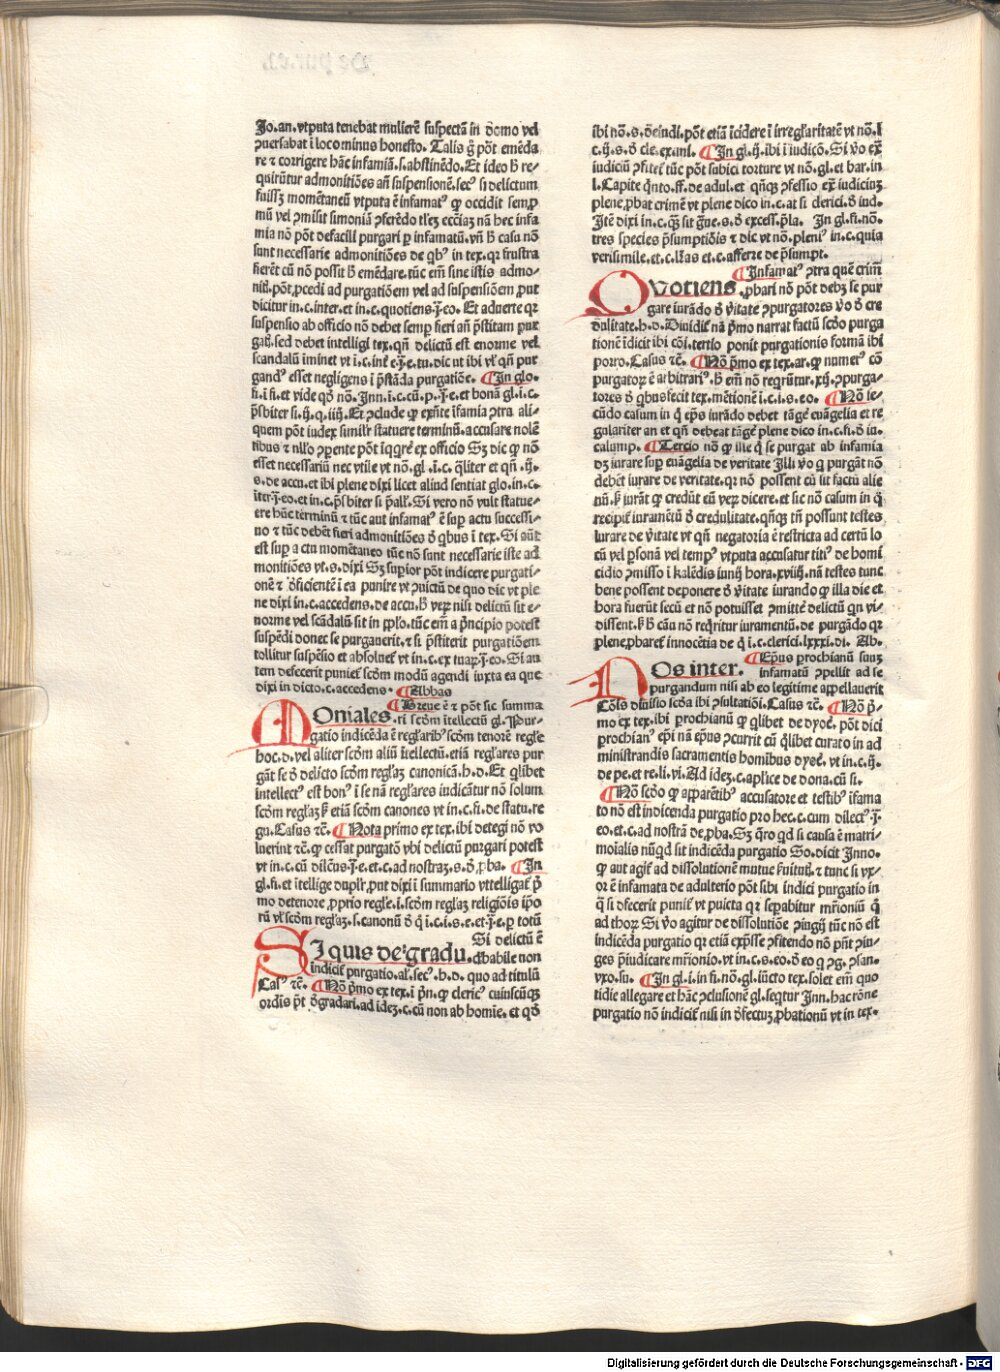 Jo.an.vtputa tenebat mulierē suspectā in domo vel
ꝓuersabat ī loco minus honesto. Talis g̃ pōt emēda
re ⁊ corrigere hāc infamiā.s.abstinēdo. Et ideo ħ re-
quirūtur admonitiōes añ suspensionē.secꝰ si delictum
fuiss₃ momētaneū vtputa ē infamatꝰ qꝛ occidit semꝑ
mū vel ꝓmisit simoniā ꝓferēdo
mia nō pōt defacili purgari ꝑ infamatū.vñ ħ casu nō
sunt necessarie admonitiōes de qbꝰ in tex.qꝛ frustra
fierēt cū nō possit ħ emēdare.tūc em̄ sine istis admo-
nitiōibꝰ pōt ꝓcedi ad purgatiōem vel ad suspensiōem ꝓut
dicitur in.c.inter.et in.c.quotiens.j̄.eo. Et aduerte qꝛ
suspensio ab officio nō debet semꝑ fieri añ p̄stitam pur
gatō.sed debet intelligi tex.qñ delictū est enorme vel
scandalū iminet vt ī.c.inť e.j̄.e.tu.dic ut ibi vľ qñ pur
gandꝰ esset negligens ī p̄stāda purgatiōe. ¶In glo.
fi.ī fi.et vide qđ nō.Inn.ī.c.cū.p.j̄.e.et bonā gl.ī.c.
p̄sbiter si.ij.q.iiij. Et ꝯclude qꝙ exñte īfamia ꝯtra ali-
quem pōt iudex similr̄ statuere terminū.accusare nolē
tibus ⁊ nłło ꝯꝑente pōt īqꝛēre ex officio Sꝫ dic qꝙ nō
esset necessariū nec vtile vt nō.gl.ī.c.q̄liter et qñ.ij.
s.de accu.et ibi plene dixi licet aliud sentiat glo.in.c.
īter.j̄.eo.et in.c.p̄sbiter si p̄allꝰ. Si vero nō vult statue-
re hāc terminū ⁊ tūc aut infamatꝰ ē suꝑ actu successi-
uo ⁊ tūc debēt fieri admonitiōes đ qbus ī tex. Si aūt
est suꝑ a ctu momētaneo tūc nō sunt necessarie iste ad
monitiōes vt.s.dixi Sꝫ suꝑior pōt indicere purgati-
onē ⁊ đficientē ī ea punire vt ꝯuictū de quo dic vt ple
ne dixi in.c.accedens.de accu.ħ veꝝ nisi delictū sit e-
norme vel scādalū sit in ꝓplo.tūc em̄ a p̄ncipio potest
suspēdi donec se purgauerit.⁊ si p̄stiterit purgatiōem
tollitur suspēsio et absoluet̄ vt in.c.ex tuaꝝ.j̄.eo. Si au
tem defecerit puniet̄ scđm modū agendi iuxta ea que
dixi in dicto.c.accedens. ¶Abbas
¶Breue ē ⁊ pōt sic summa
MOniales. ri scđm ītellectū gl. Pur-
gatio indicēda ē regľaribꝰ scđm tenorē regľe
hoc.d.vel aliter scđm aliū ītellectū.etiā regľares pur
gāt se đ delicto scđm regľaꝫ canonicā.h.d. Et q̄libet
intellectꝰ est bonꝰ ī se nā regľares indicātur nō solum
scđm regľaꝫ ꝫ etiā scđm canones vt in.c.fi.de statu.re
gu. Casus ⁊c̄. ¶Nota primo ex tex.ibi detegi nō vo
luerint ⁊c̄.qꝙ cessat purgatō vbi delictū purgari potest
vt in.c.cū dilcūs.j̄.e.et.c.ad nostraꝫ.s.đ ꝓba. ¶In
gl.fi.et ītellige duplr̄,put dixi ī summario vt telligat̄ p̄
mo de tenore ꝓprio regľe.ī.scđm regľaꝫ religiōis ip̄o
rū vľ scđm regľaꝫ.s.canonū đ q̄ ī.c.i.s.e.et.j̄.e.ꝑ totū
Si delictū ē
SI quis de gradu. ꝓbabile non
indicit̄ purgatio.al̄.secꝰ.h.d. quo ad titulū
Casꝰ ⁊c̄. ¶Nō p̄mo ex tex.ī p̄n.qꝙ clericꝰ cuiuscūqꝫ
ordis p̄t đgradari.ad ideꝫ.c.cū non ab homīe.et qđ
ibi nō.s.đeindi.pōt etiā īcidere ī irregľaritatē vt nō.ī
c.ij.s.đ cle.ex.mi. ¶In gl.ij.ibi ī iudicō. Si ꝟo ex̄
iudiciū ꝓfitet̄ tūc pōt subici torture vt nō.gl.et bar.in
l. Capite q̄nto.ff.de adul.et qñqꝫ ꝓfessio ex̄ iudiciuꝫ
plene ꝓbat crimē vt plene dico in.c.at si clerici.đ iud.
Itē dixi in.c.qꝫ sit ḡue.s.đ excess.p̄la. In gl.fi.nō.
tres species p̄sumptiōis ⁊ dic vt nō.pleniꝰ in.c.quia
verisimile.et.c.lr̄as et.c.afferte de p̄sumpt.
¶Infamatꝰ ꝯtra quē crimī
QVotiens. ꝓbari nō pōt debꝫ se pur
gare iurādo đ v̄itate ꝯpurgatores ꝟo đ cre
dulitate.h.d. Diuidit̄ nā p̄mo narrat factū scđo purga
tionē īdicit ibi cōi.tertio ponit purgationio formā ibi
porro. Casus ⁊c̄. ¶Nō p̄mo ex tex.ar.qꝙ numerꝰ cō
purgatoꝝ ē arbitrariꝰ.ħ em̄ nō reqꝛūtur.xij.ꝯpurga-
tores đ qbus fecit tex.mētionē ī.c.i.s.eo. ¶Nō se-
cūdo casum in q̄ ep̄s iurādo debet tāgē euāgelia et re
gulariter an et qñ debeat tāgē plene dico in.c.fi.đ iu.
calump. ¶Tercio nō qꝙ ille q̄ se purgat ab infamia
dꝫ iurare suꝑ euāgelia de veritate Illi ꝟo q̄ purgāt nō
debēt iurare de veritate.qꝛ nō possent cū sit factū alie
nū.ꝫ iurāt qꝙ credūt eū veꝝ dicere.et sic nō casum in q̄
recipit̄ iuramētū đ credulitate.qñqꝫ tn̄ possunt testes
iurare de v̄itate vt qñ negatoria ē restricta ad certū lo
cū vel ꝑsonā vel tempꝰ vtputa accusatur titiꝰ de homi
cidio ꝯmisso ī kalēdis iunij hora.xviij.nā testes tunc
bene possent deponere đ v̄itate iurando qꝙ illa die et
hora fuerūt secū et nō potuisset ꝯmittē delictū qn vi-
dissent.ꝫ ħ cāu nō reqꝛitur iuramentū.de purgādo qꝛ
plene ꝓbaret̄ innocētia de q̄ ī.c.clerici.lxxxi.di. Ab.
¶Ep̄us ꝓchianū suuꝫ
NOs inter. infamatū ꝯpellit ad se
purgandum nisi ab eo legitime appellauerit
Cōis diuisio scđa ibi ꝯsultatiōi. Casus ⁊c̄. ¶Nō p̄-
mo ex tex.ibi ꝓchianū qꝙ q̄libet de dyoc̄. pōt dici
ꝓchianꝰ ep̄i nā ep̄us ꝯcurrit cū q̄libet curato in ad
ministrandis sacramentis homibus dyoc̄. vt in.c.ij.
de pe.et re.li.vi. Ad ideꝫ.c.apľice de dona.cū si.
¶Nō scđo qꝙ apparētibꝰ accusatore et testibꝰ īfama
to nō est indicenda purgatio pro hec.c.cum dilectꝰ.j̄.
eo.et.c.ad nostrā de.ꝓba. Sꝫ q̄ro qđ si causa ē matri-
moīalis nūqđ sit indicēda purgatio So.dicit Inno.
qꝙ aut agit̄ ad dissolutionē mutue ẜuitut̄.⁊ tunc si vx-
or ē infamata de adulterio pōt sibi indici purgatio in
q̄ si đfecerit puniet̄ vt ꝯuicta qꝛ seꝑabitur mr̄imoniū q̄
ad thoꝝ Si ꝟo agitur de dissolutiōe ꝯiugij tūc nō est
indicēda purgatio qꝛ etiā exp̄sse ꝯfitendo nō pn̄t ꝯiu-
ges p̄iudicare mr̄imonio.vt in.c.s.eo.đ eo q̄ ꝯg. ꝯsan-
vxo.su. ¶In gl.i.in fi.nō.gl.iūcto tex.solet em̄ quo
tidie allegare et hāc ꝯclusionē gl.seqꝛtur Inn.hac rōne
purgatio nō indicit̄ nisi in đfectuꝫ ꝓbationū vt in tex.
Digitalisierung gefördert durch die Deutsche Forschungsgemeinschaft - DFG